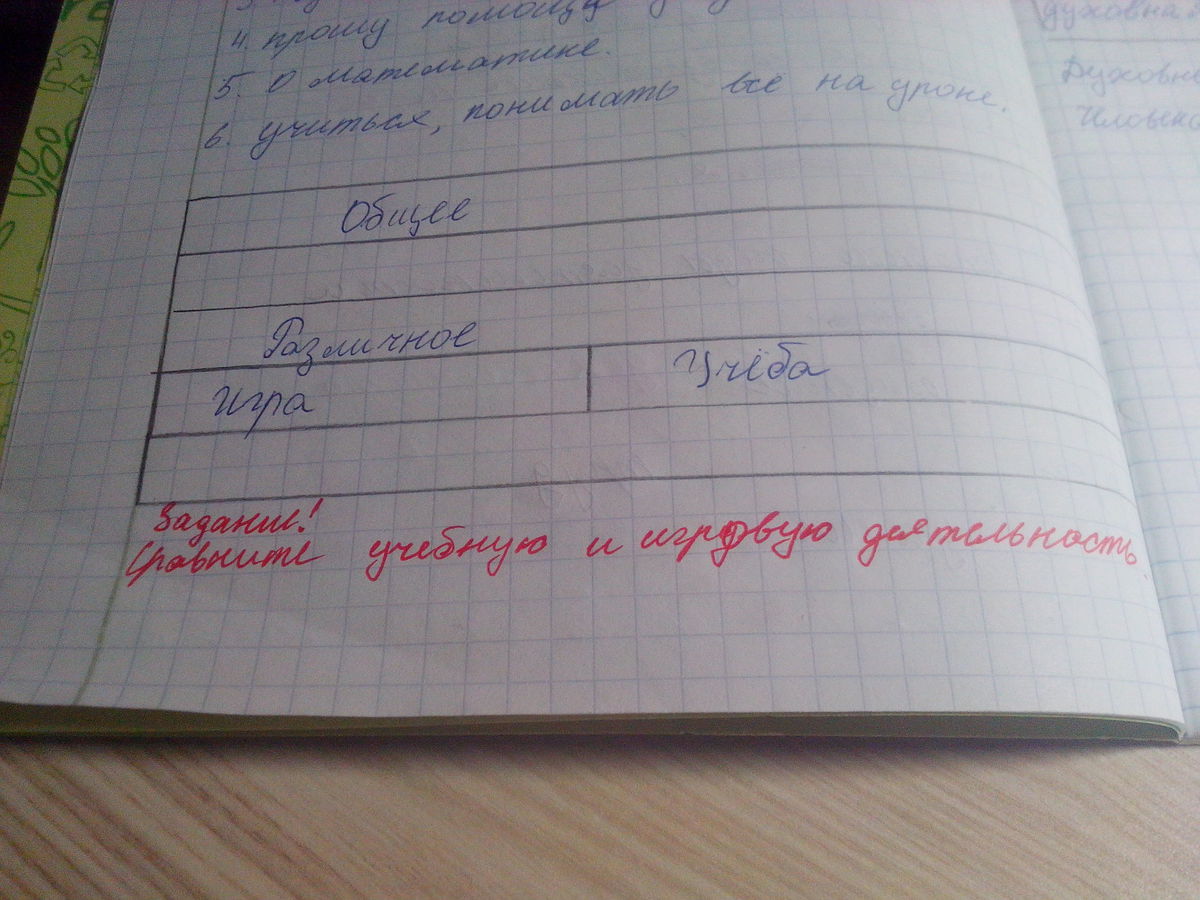 4. прошу помощи у
5. О математике.
6. учиться, понимать всё на уроке.
Общее
Различное
Игра
Учёба
Задание!
Сравните учебную и игровую деятельность
духовна
Духовн